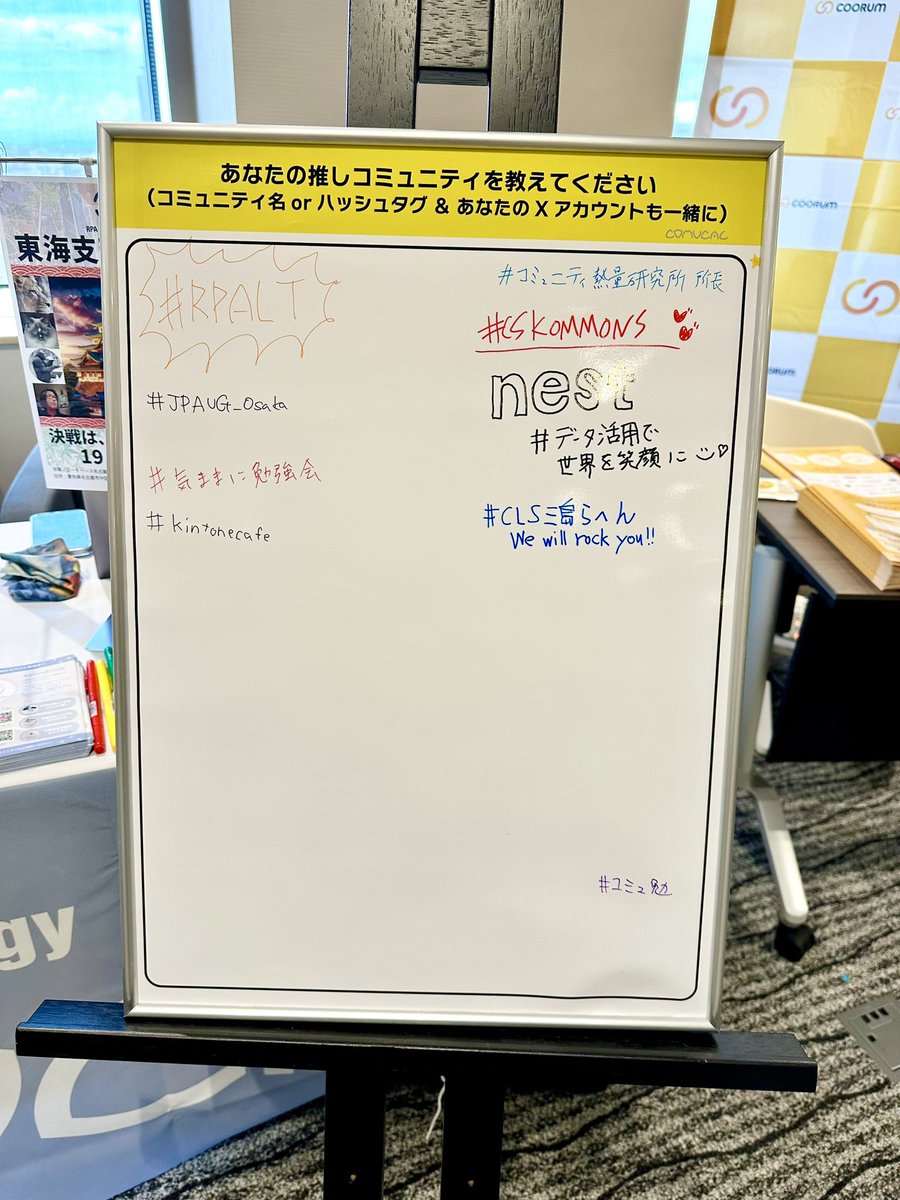 あなたの推しコミュニティを教えてください
(コミュニティ名 or ハッシュタグ & あなたの X アカウントも一緒に)
COMUCAL
#RPALT
#JPAUG_Osaka
#気ままに勉強会
#kintonecafe
#コミュニティ熱量研究所 所長
#CSKOMMONS
nest
#データ活用で
世界を笑顔に
#CLS三島らへん
We will rock you!!
#コミュ勉
COORUM
COORUM
東海支
決戦は、
19
gy